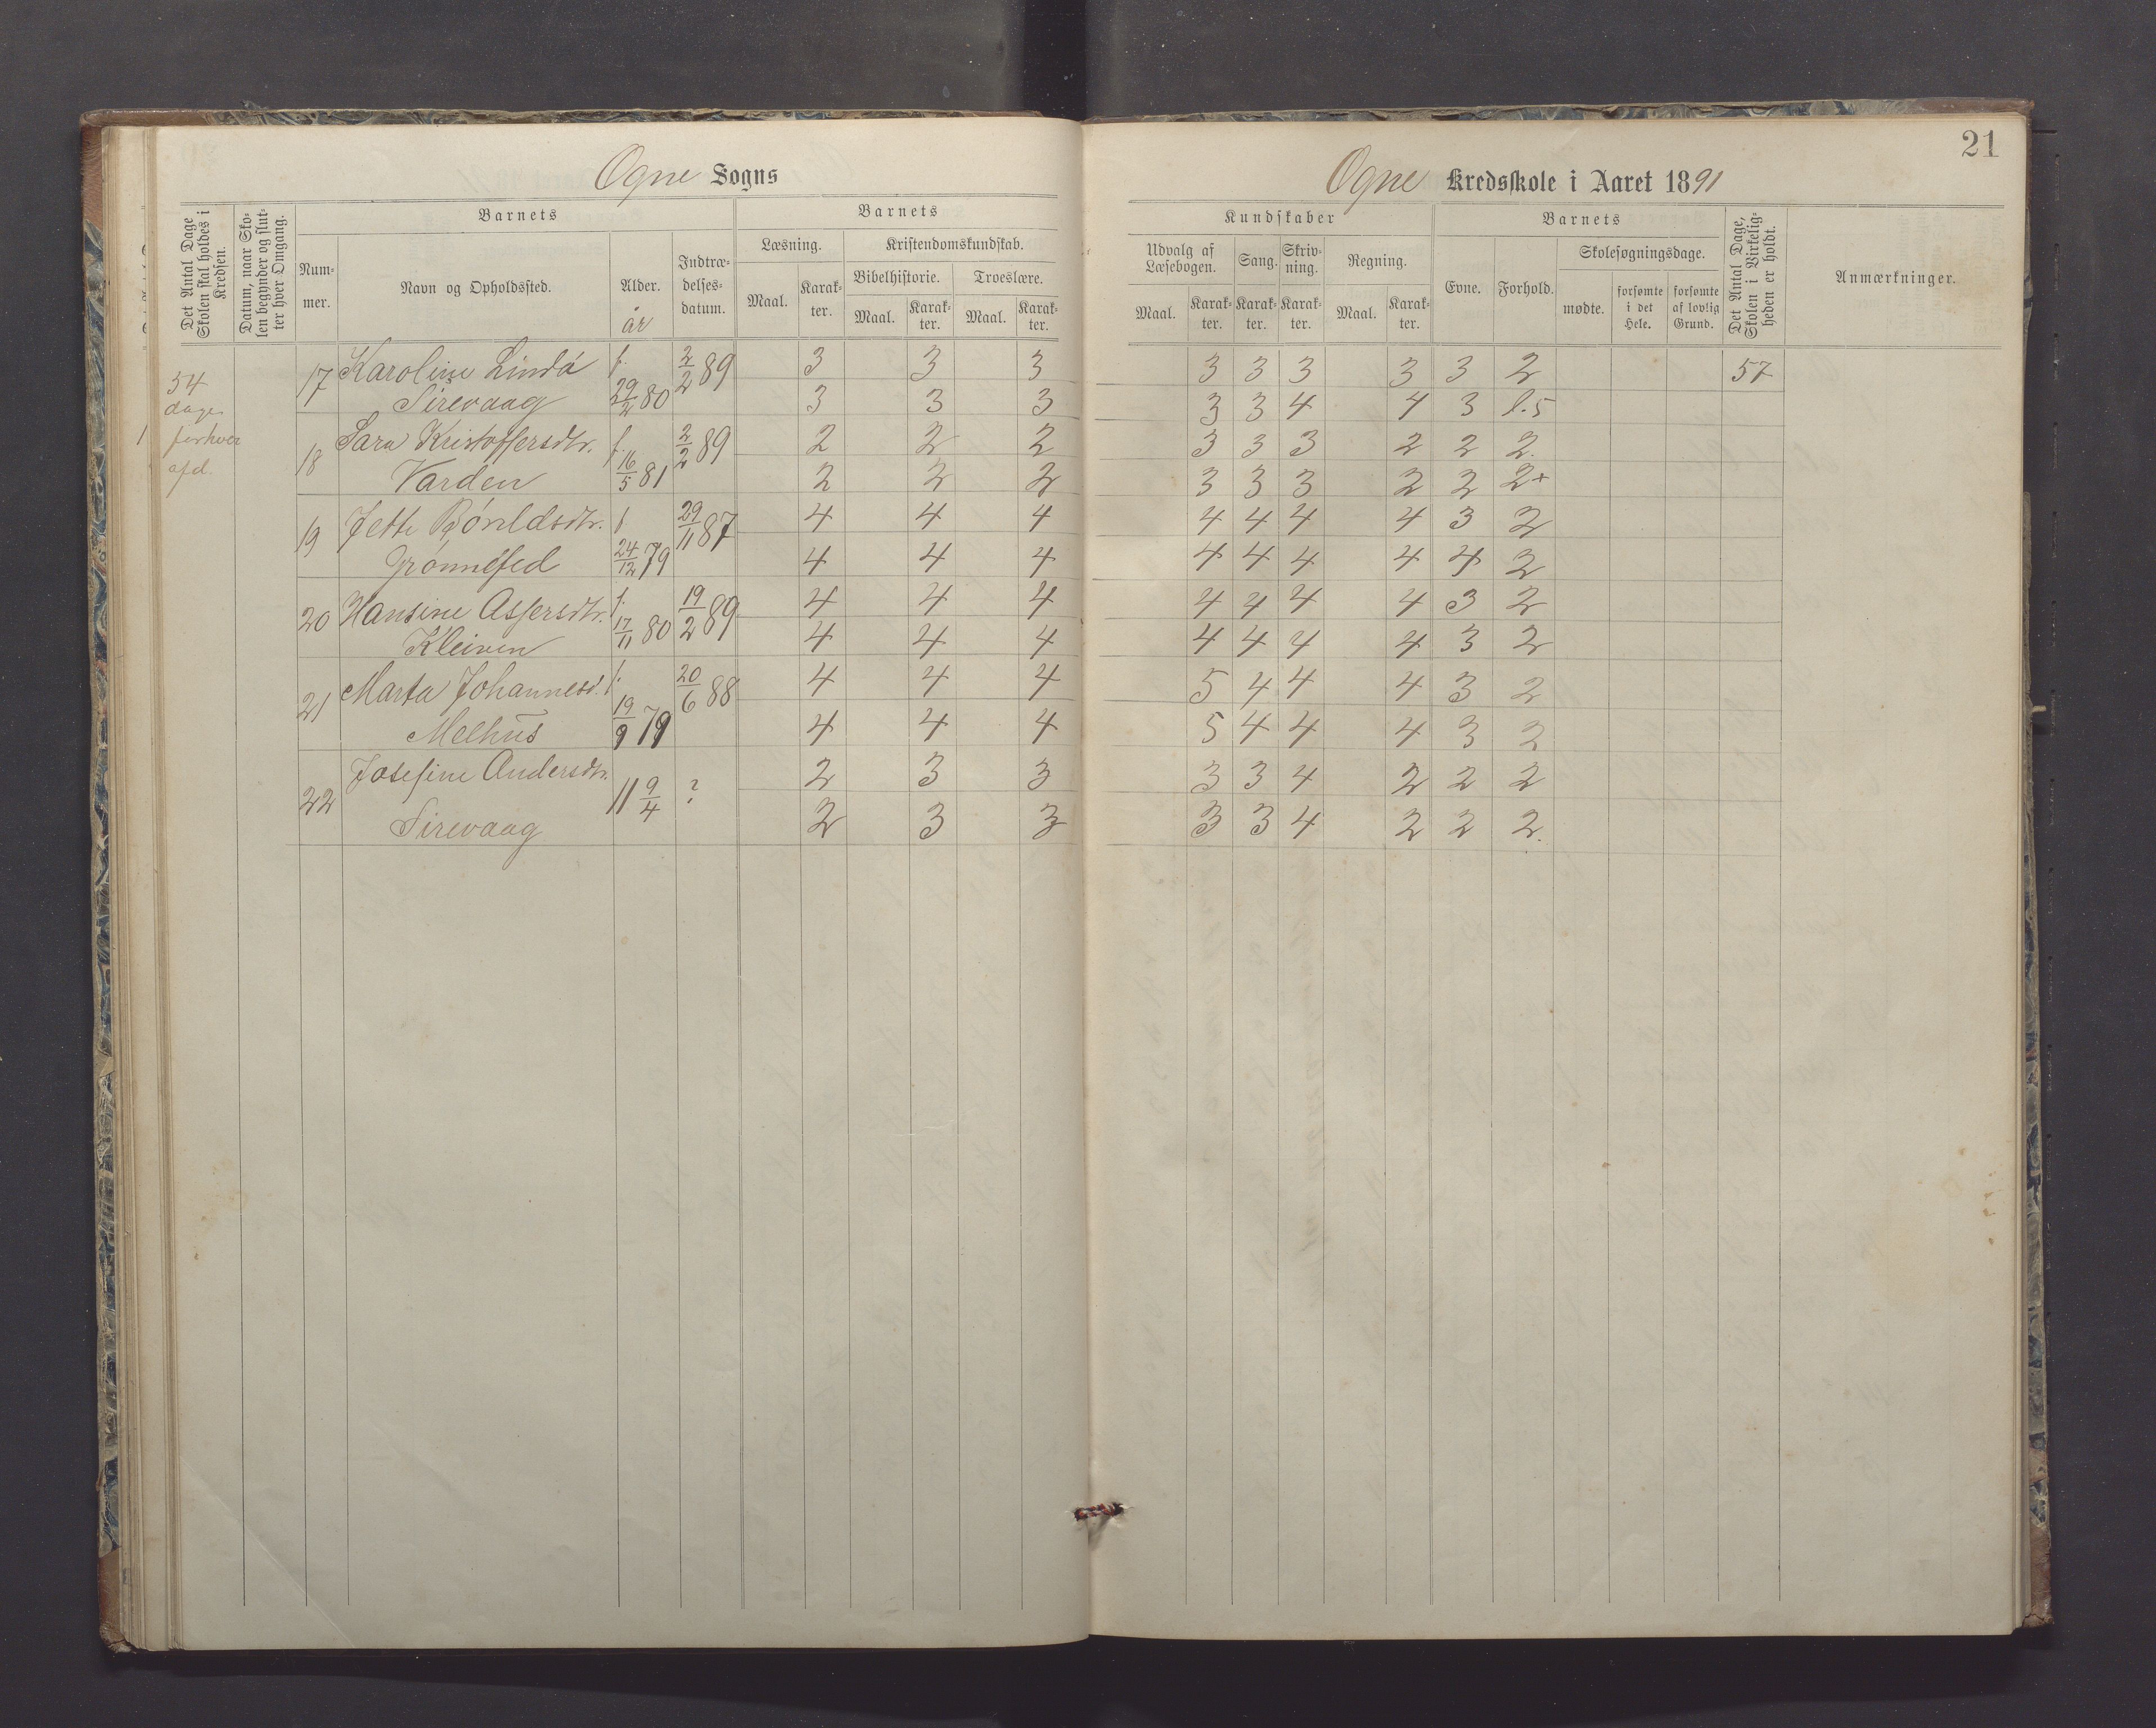 Ogne Sogns
Det Antal Dage Skolen skal holdes i Kredsen.
Datum, naar Skolen begynder og slutter hver Omgang.
Barnets
Nummer.
Navn og Opholdssted.
Alder.
år
Indtrædelses-datum.
Barnets
Læsning.
Kristendomskundskab.
Maal.
Karakter.
Bibelhistorie.
Troeslære.
Maal.
Karakter.
Maal.
Karakter.
54
dage
for hver
afd.
17 Karoline Lindø f. 2/2 89 3 3 3
Sirevaag 29/2 80 3 3 3
18 Sara Kristoffersdtr. f. 2/2 89 2 2 2
Varden 16/5 81 2 2 2
19 Jette f 29/11 87 4 4 4
24/12 79 4 4 4
20 Hansine Assersdtr. f. 19/2 89 4 4 4
Kleiven 17/11 80 4 4 4
21 Marta Johannesd. f. 20/6 88 4 4 4
Melhus 19/9 79 4 4 4
22 Josefine Andersdtr. 11 9/4 ? 2 3 3
Sirevaag 2 3 3
21
Ogne Kredsskole i Aaret 1891
Kundskaber
Barnets
Det Antal Dage, Skolen i Virkeligheden er holdt.
Anmærkninger.
Udvalg af Læsebogen.
Sang.
Skrivning.
Regning.
Evne.
Forhold.
Skolesøgningsdage.
Maal.
Karakter.
Karakter.
Karakter.
Maal.
Karakter.
mødte.
forsømte i det Hele.
forsømte af lovlig Grund.
3 3 3 3 3 2 57
3 3 4 4 3 l.5
3 3 3 2 2 2.
3 3 3 2 2 2+
4 4 4 4 3 2
4 4 4 4 4 2
4 4 4 4 3 2
4 4 4 4 3 2
5 4 4 4 3 2
5 4 4 4 3 2
3 3 4 2 2 2
3 3 4 2 2 2.